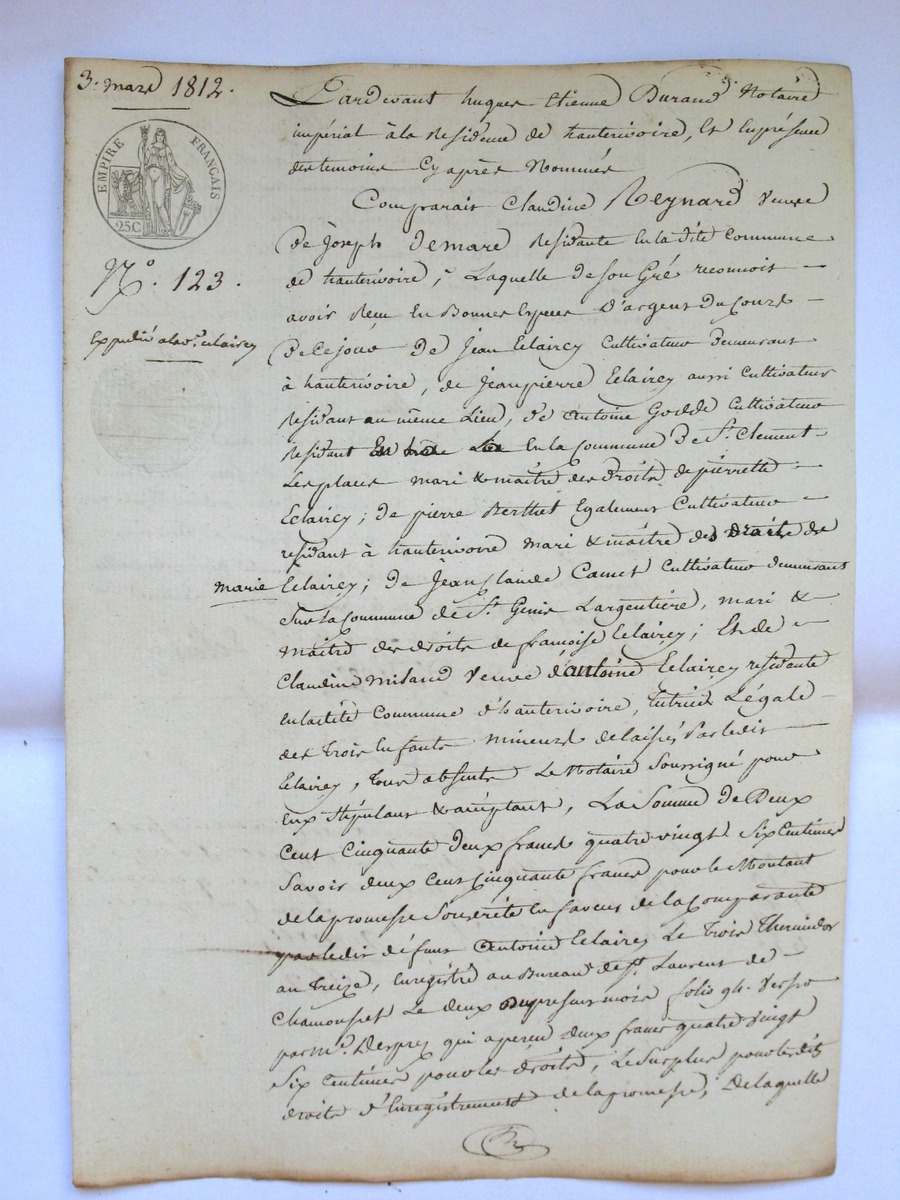 3. mars 1812.
EMPIRE FRANÇAIS
25C
N.° 123.
Expédié à la v.e Eclaircy
Pardevant hugues Etienne Durand Notaire
impérial à la Résidence de hauterivoire, Et Enprésence
des temoins Cy après Nommés
Comparait Claudine Reynard Veuve
De joseph Demare Residante En la dite Commune
de hauterivoire, Laquelle de Son Gré reconnoit
avoir Recu En Bonnes Especes D'argent Du Cours
De Ce jour De jean Eclaircy Cultivateur demeurant
à hauterivoire, de jeanpierre Eclaircy aussi Cultivateur
Residant au même Lieu, de antoine Godde Cultivateur
Residant En la Commune De St. Clement
Les places mari & maitre des Droits de pierrette
Eclaircy; de pierre Berthet Egalement Cultivateur
residant à hauterivoire mari & maitre des droits de
marie Eclaircy; de jean Claude Camet Cultivateur demeurant
Sur la Commune de St. Genis Largentière, mari &
maitre des droits de françoise Eclaircy; Et de
Claudine miland Veuve d'antoine Eclaircy residante
En la dite Commune d'hauterivoire, Tutrice Légale
des Trois Enfants mineurs delaissés Par ledit
Eclaircy, Tous absents Le Notaire Soussigné pour
Eux Stipulant & acceptant, La Somme de Deux
Cent Cinquante Deux francs quatre vingt Six Centimes
Savoir deux Cent Cinquante francs pour le Montant
de la promesse Souscrite En faveur de la Comparante
par ledit défunt antoine Eclaircy Le Trois Thermidor
an Treize, Enregistré au Bureau de St. Laurent de
Chamousset Le deux Du present mois folio 94. Verso
par Mr. Desprez qui a perçu deux francs quatre vingt
Six Centimes pour les droits, Le Surplus pour les dits
droits d'Enregistrement de la promesse; De laquelle